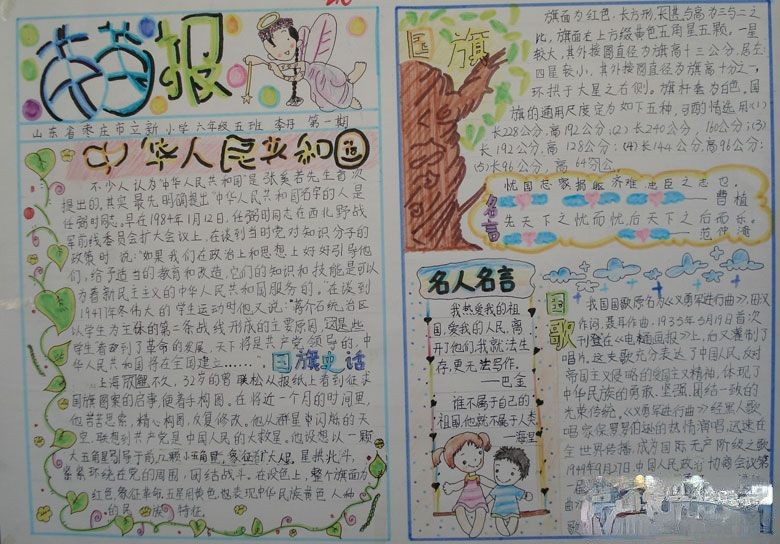 报
山东省枣庄市立新小学六年级五班 李丹 第一期
中华人民共和国
不少人认为"中华人民共和国"是张奚若先生首次
提出的,其实最先明确提出"中华人民共和国"名字的人是
任弼时同志。早在1984年1月12日,任弼时同志在西北野战
军前线委员会扩大会议上,在谈到当时党对知识分子的
政策时说:"如果我们在政治上和思想上好好引导他
们,给予适当的教育和改造,它们的知识和技能是可以
为着新民主主义的中华人民共和国服务的。在谈到
1947年冬伟大的学生运动时他又说:"蒋介石统治区
以学生为主体的第二条战线形成的主要原因,这是些
学生看到了革命的发展,天下将是共产党领导的,中
华人民共和国将在全国建立……
国旗史话
上海 不久,32岁的曾联松从报纸上看到征求
国旗图案的启事,便着手构图。在将近一个月的时间里,
他苦苦思索,精心构图,反复修改。他从群星中闪烁的天
空,联想到共产党是中国人民的大救星。他设想以一颗
大五角星引导于前,几颗小五角星,象征广大人民,星拱北斗,
紧紧环绕在党的周围,团结战斗。在设色上,整个旗面为
红色,象征革命,五星用黄色,也表现中华民族黄色人种
的民族特征。
国旗
旗面为红色,长方形,其长与高为三与二之
比,旗面左上方缀黄色五角星五颗。一星
较大,其外接圆直径为旗高十分三,居左;
四星较小,其外接圆直径为旗高十分之一,
环拱于大星之右侧。旗杆套为白色。国
旗的通用尺度定为如下五种,可酌情选用:(1)
长228公分,高192公分;(2)长240公分,160公分;(3)
长192公分,高128公分;(4)长144公分,高96公分;
(5)长96公分,高64公分
名言
忧国忘家,捐躯济难,忠臣之志也。
——曹植
先天下之忧而忧后天下之后而乐。
——范仲淹
名人名言
我热爱我的祖
国,爱我的人民,离
开了他们,我就无法生
存,更无法写作。
——巴金
谁不属于自己的
祖国,他就不属于人类
——海塞
国歌
我国国歌原名为《义勇军进行曲》,田汉
作词,聂耳作曲,1935年5月19日首次
刊登在《电通画报》上,后又灌制了
唱片。这支歌充分表达了中国人民反对
帝国主义侵略的爱国主义精神,体现了
中华民族的勇敢、坚强、团结一致的
光荣传统。《义勇军进行曲》经黑人歌
唱家保罗罗伯逊的热情演唱,迅速在
全世界传播,成为国际无产阶级之歌
1949年9月27日,中国人民政治协商会议第
一届